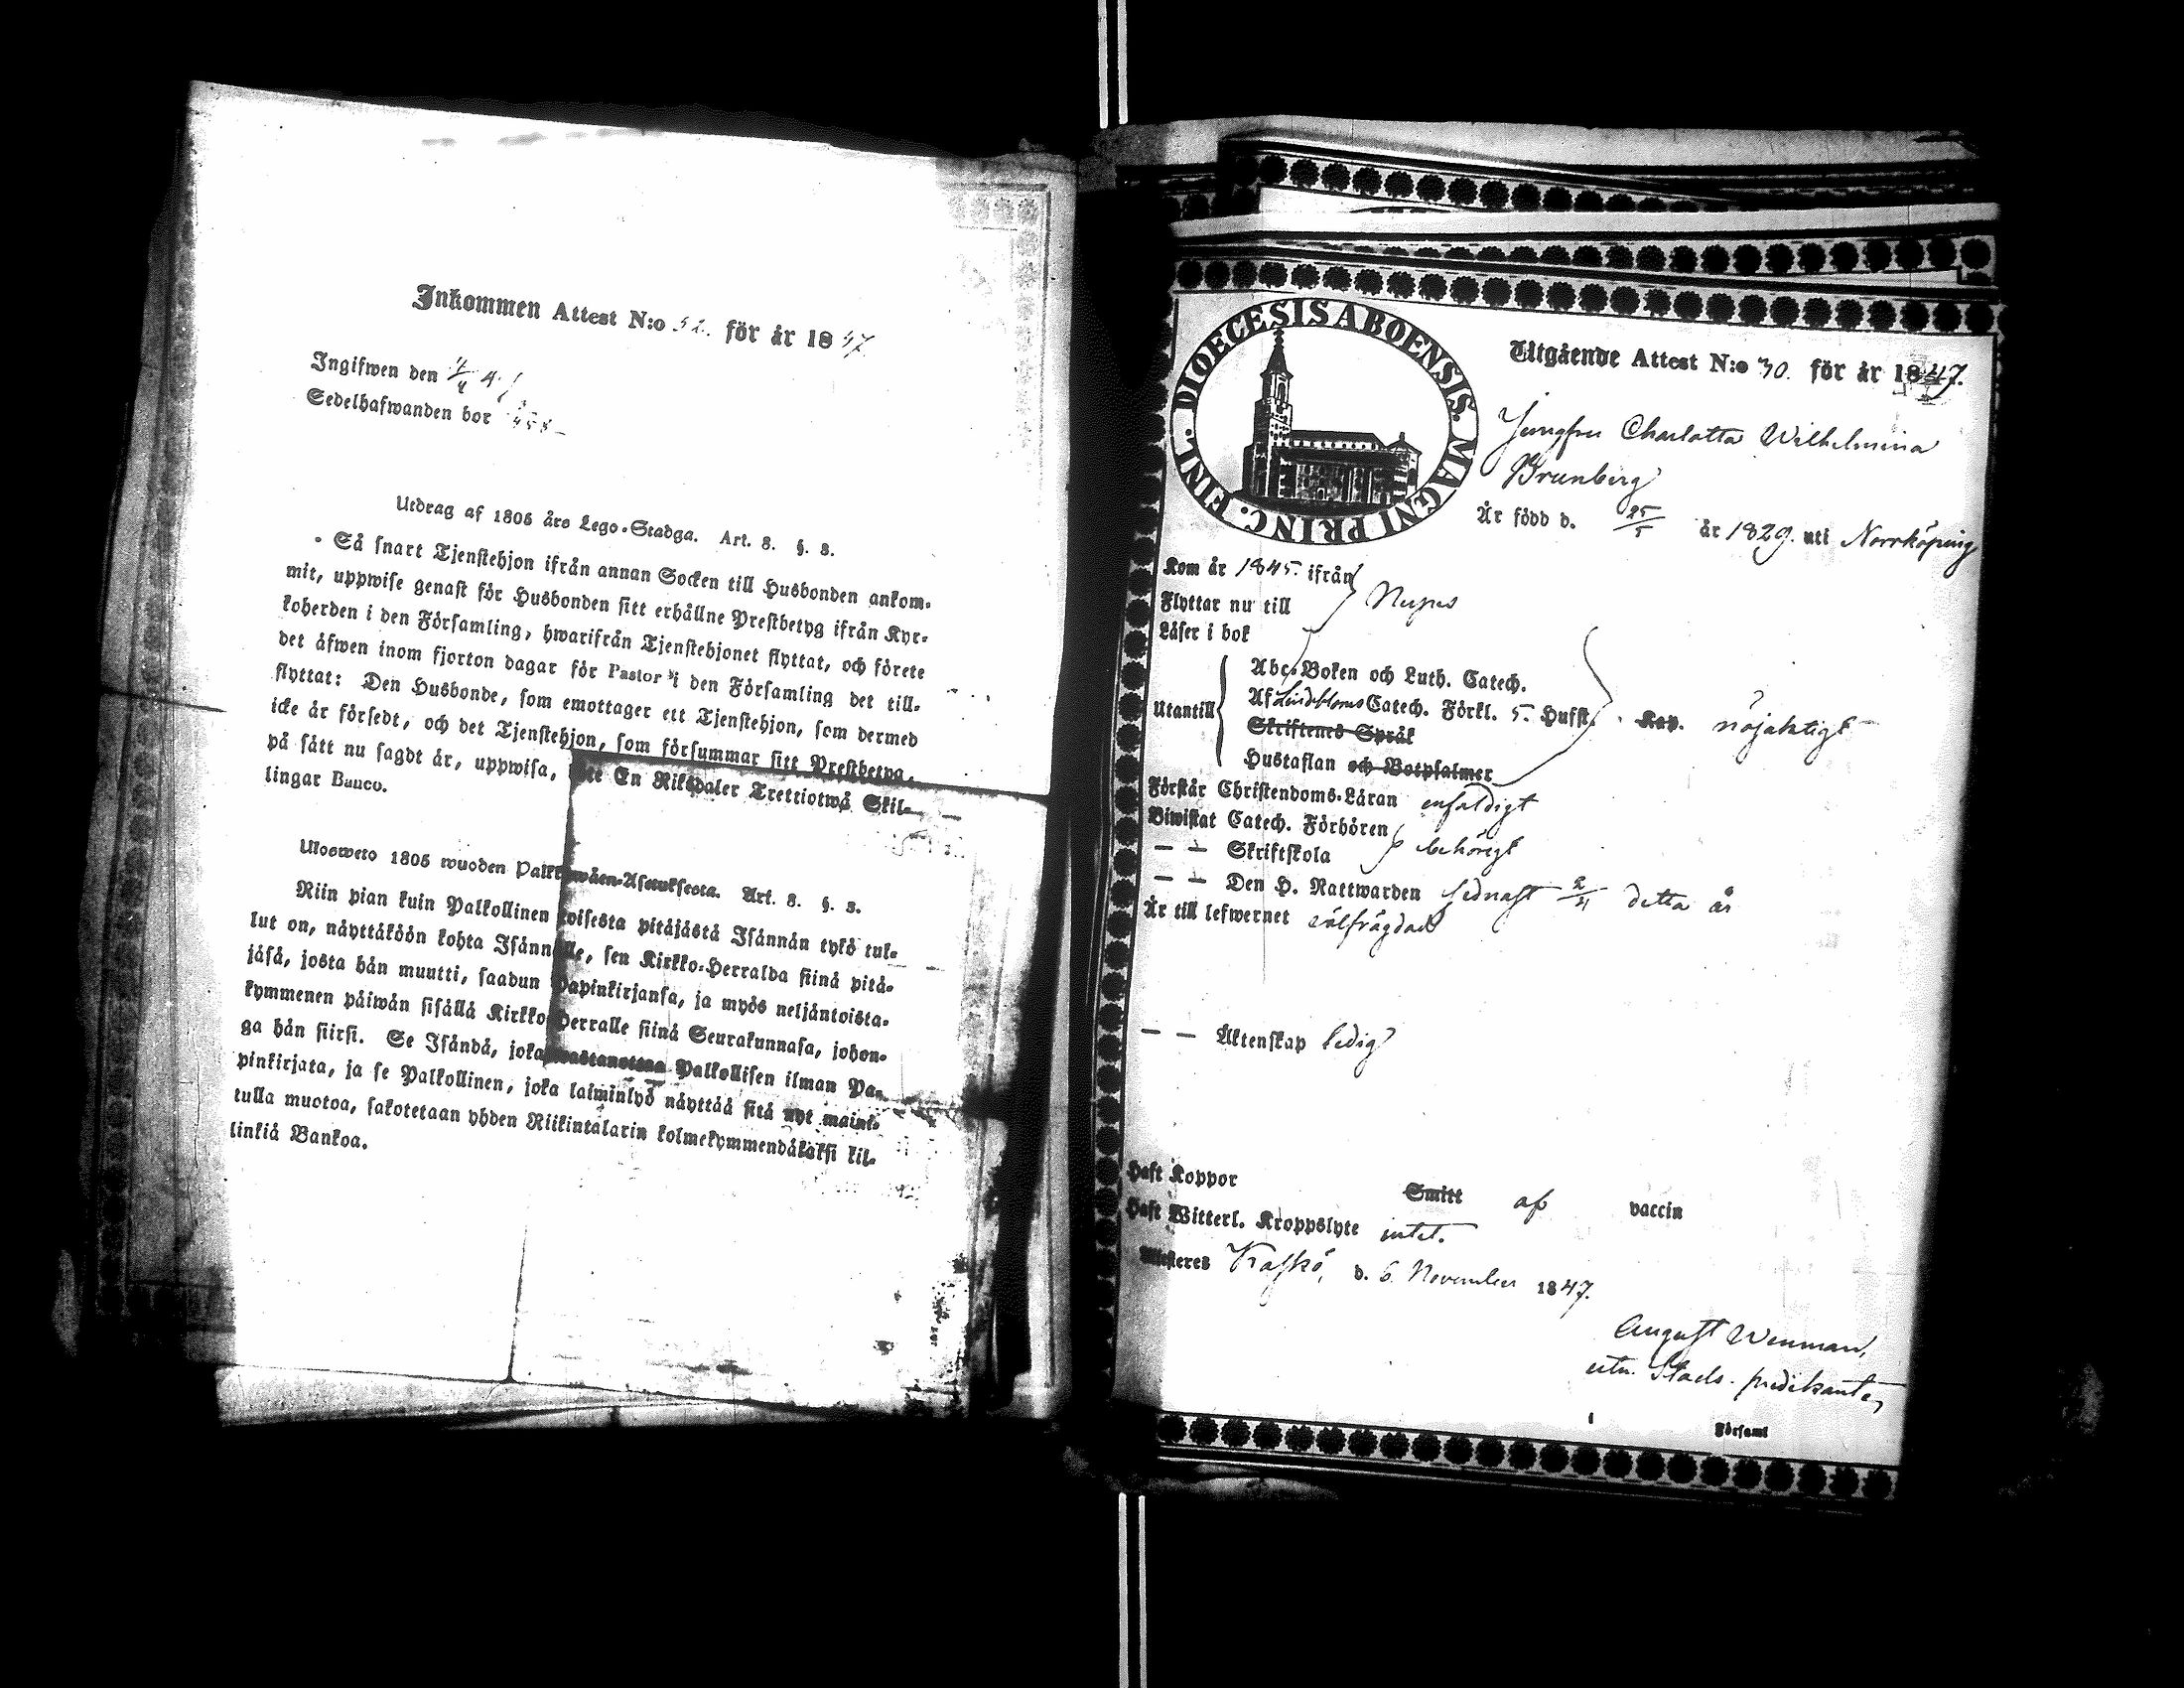 Inkommen Attest N:o 52. för år 1847
Ingifwen den
Sedelhafwanden bor
Utdrag af 1805 års Lego-Stadga. Art. 8. §. 3.
Så snart Tjenstehjon ifrån annan Socken till Husbonden ankom-
mit, uppwise genast för Husbonden sitt erhållne Prestbetyg ifrån Kyr-
koherden i den Församling, hwarifrån Tjenstehjonet flyttat, och förete
det äfwen inom fjorton dagar för Pastor i den Församling det till-
flyttat: Den Husbonde, som emottager ett Tjenstehjon, som dermed
icke är försedt, och det Tjenstehjon, som försummar sitt Prestbetyg,
på sätt nu sagdt är, uppwisa, En Riksdaler Trettiotwå Skil-
lingar Banco.
Ulosweto 1805 wuoden Palkkawäen-Asetuksesta. Art. 8. §. 3.
Niin pian kuin Palkollinen toisesta pitäjästä Isännän tykö tul-
lut on, näyttäköön kohta Isännälle, sen Kirkko-Herralda siinä pitä-
jäsä, josta hän muutti, saadun Papinkirjansa, ja myös neljäntoista-
kymmenen päiwän sisällä Kirkko-Herralle siinä Seurakunnasa, johon-
ga hän siirsi. Se Isändä, joka wastanottaa Palkollisen ilman Pa-
pinkirjata, ja se Palkollinen, joka laiminlyö näyttää sitä nyt maini-
tulla muotoa, sakotetaan yhden Riikintalarin kolmekymmendäkaksi kil-
linkiä Bankoa.
DIOECESIS ABOENSIS. MAGNI PRINC. FINL.
Utgående Attest N:o 30. för år 1847.
Jungfru Charlotta Wilhelmina
Brunberg
Är född d. 25/5 år 1829. uti Norrköping
Kom år 1845. ifrån
Flyttar nu till Nerpes
Läser i bok
Abc-Boken och Luth. Catech.
Utantill Af Lindebloms Catech. Förkl. 5. Hufst. Kap. nöjaktigt
Skriftenes Språk
Hustaflan och Botpsalmer
Förstår Christendoms-Läran enfaldigt
Biwistat Catech. Förhören
— — Skriftskola behörigt
— — Den H. Nattwarden sednast detta år
Är till lefwernet wälfrägdad
— — Äktenskap ledig
Haft Koppor Smitt af vaccin
Haft Witterl. Kroppslyte intet.
Attesteres Kaskö, d. 6 November 1847.
August Wenman,
utn. Stads-predikant
i Församl